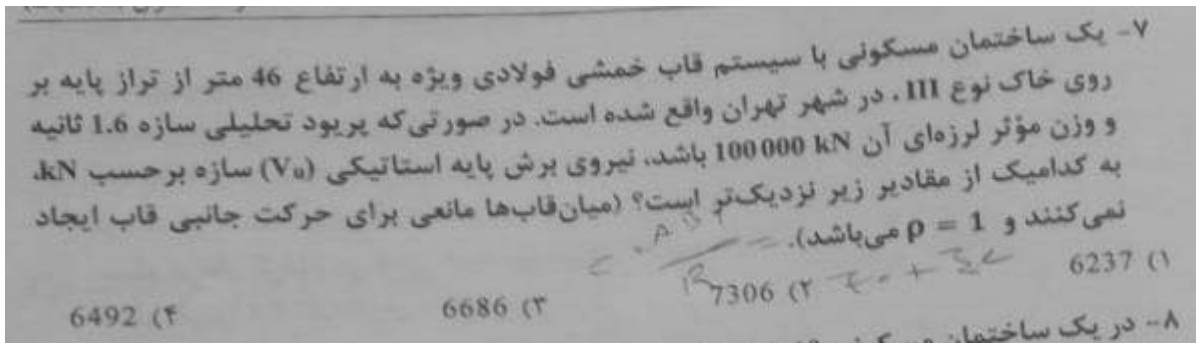 ۷- یک ساختمان مسکونی با سیستم قاب خمشی فولادی ویژه به ارتفاع 46 متر از تراز پایه بر
روی خاک نوع III، در شهر تهران واقع شده است. در صورتی‌که پریود تحلیلی سازه 1.6 ثانیه
و وزن مؤثر لرزه‌ای آن 100000 kN باشد، نیروی برش پایه استاتیکی (Vu) سازه برحسب kN،
به کدامیک از مقادیر زیر نزدیک‌تر است؟ (میان‌قاب‌ها مانعی برای حرکت جانبی قاب ایجاد
نمی‌کنند و ρ = 1 می‌باشد).
۱) 6237
۲) 7306
۳) 6686
۴) 6492
۸- در یک ساختمان